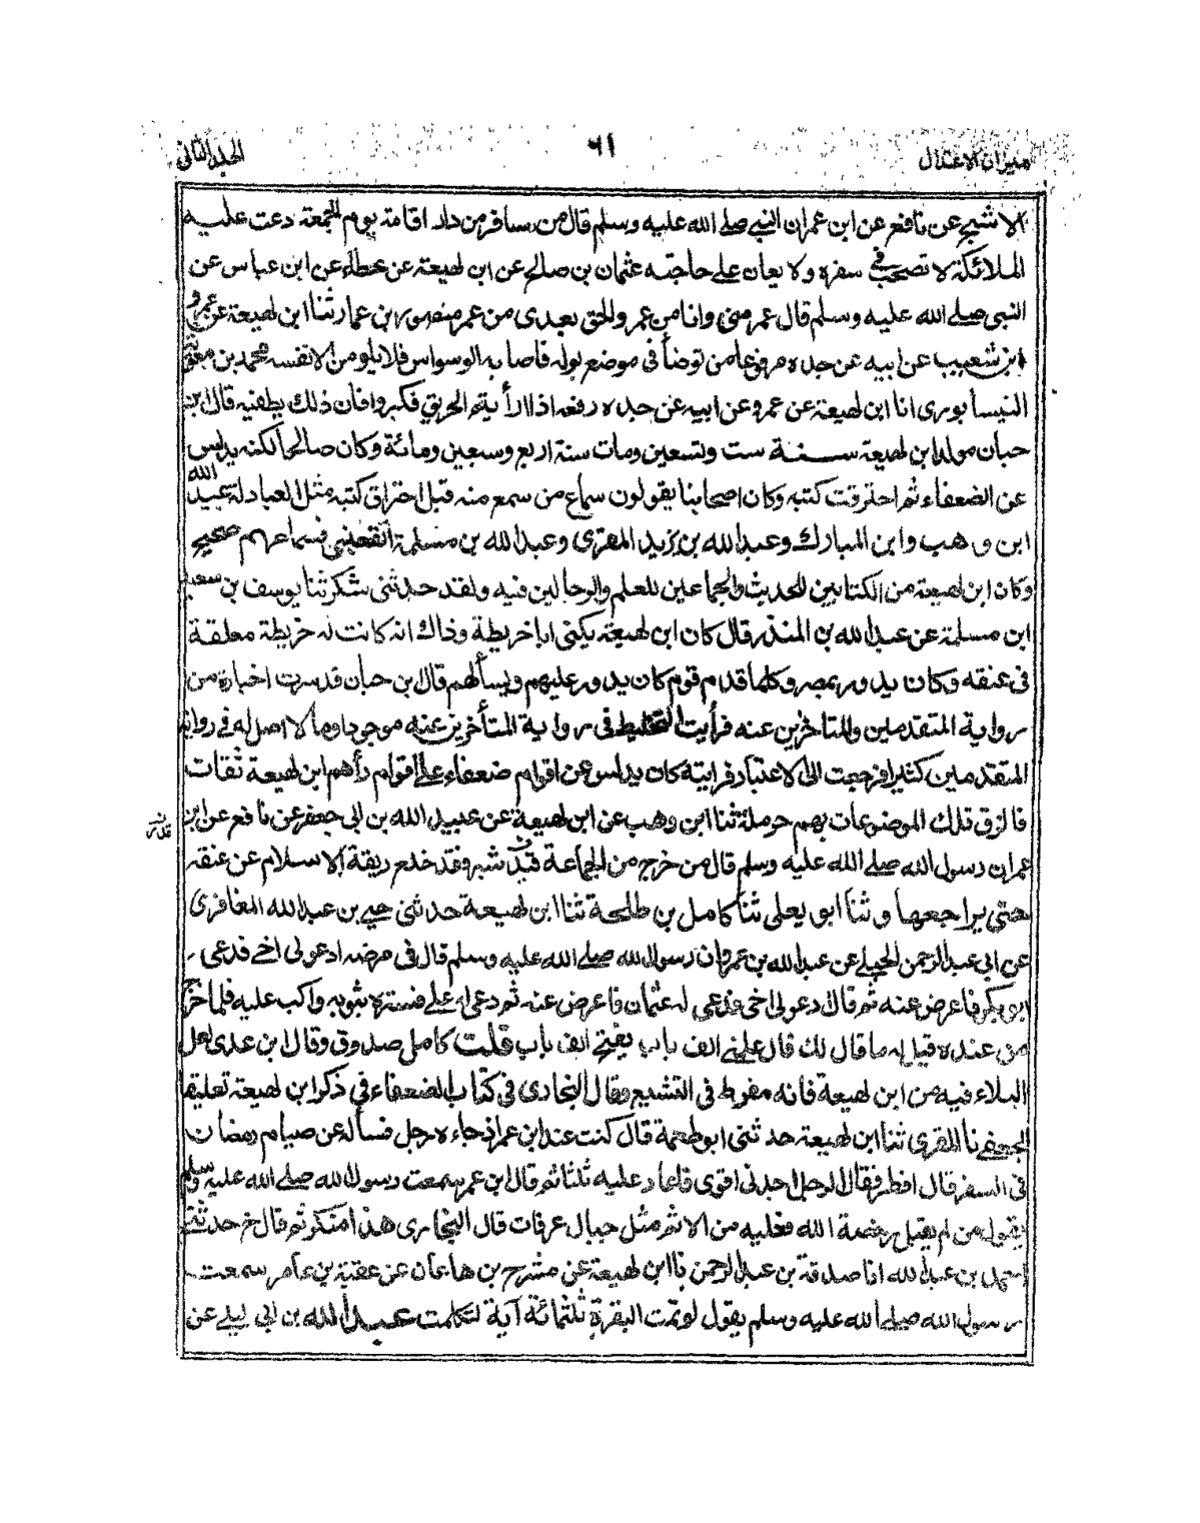 ميزان الاعتدال
٦١
الجلد الثانى
الاشج عن نافع عن ابن عمران النبى صلے الله عليه وسلم قال من سافر من دار اقامة يوم الجمعة دعت عليه
الملائكة لا تصحب فى سفره ولا يعان علے حاجته عثمان بن صالح عن ابن لهيعة عن عطاء عن ابن عباس عن
النبى صلے الله عليه وسلم قال عمر منى وانا من عمر والحق بعدى من عمر منصور بن عمار ثنا ابن لهيعة عن عمرو
ابن شعيب عن ابيه عن جده مرفوعا من توضأ فى موضع بوله فاصابه الوسواس فلا يلومن الا نفسه محمد بن معوية
النيسابورى انا ابن لهيعة عن عمرو عن ابيه عن جده رفعه اذا رأيتم الحريق فكبروا فان ذلك يطفيه قال ابن
حبان مولد ابن لهيعة سنة ست وتسعين ومات سنة اربع وسبعين ومائة وكان صالحا لكنه يدلس
عن الضعفاء ثم احترقت كتبه وكان اصحابنا يقولون سماع من سمع منه قبل احتراق كتبه مثل العبادلة عبد الله
ابن وهب وابن المبارك وعبد الله بن يزيد المقرى وعبد الله بن مسلمة القعنبى فسماعهم صحيح
وكان ابن لهيعة من الكتابين للحديث والجماعين للعلم والرحالين فيه ولقد حدثنى شكر ثنا يوسف بن سعيد
ابن مسلمة عن عبد الله بن المنذر قال كان ابن لهيعة يكنى ابا خريطة وذاك انه كانت له خريطة معلقة
فى عنقه وكان يدور بمصر وكلما قدم قوم كان يدور عليهم ويسألهم قال ابن حبان قد سبرت اخباره من
رواية المتقدمين والمتاخرين عنه فرأيت التخليط فى رواية المتأخرين عنه موجودا وما لا اصل له فى رواية
المتقدمين كثيرا فرجعت الى الاعتبار فرايته كان يدلس عن اقوام ضعفاء على اقوام رأهم ابن لهيعة ثقات
فالزق تلك الموضوعات بهم حرملة ثنا ابن وهب عن ابن لهيعة عن عبيد الله بن ابى جعفر عن نافع عن ابن
عمران رسول الله صلے الله عليه وسلم قال من خرج من الجماعة قيد شبر فقد خلع ربقة الاسلام عن عنقه
حتى يراجعها و ثنا ابو يعلى ثنا كامل بن طلحة ثنا ابن لهيعة حدثنى حيى بن عبد الله المغافرى
عن ابى عبد الرحمن الحبلى عن عبد الله بن عمرو ان رسول الله صلے الله عليه وسلم قال فى مرضه ادعو لى اخے فدعى
ابو بكر فاعرض عنه ثم قال ادعو لى اخى فدعى له عثمان فاعرض عنه ثم دعى له علے فستره بثوبه واكب عليه فلما خرج
من عنده قيل له ما قال لك قال علمنى الف باب يفتح الف باب قلت كامل صدوق وقال ابن عدى لعل
البلاء فيه من ابن لهيعة فانه مفرط فى التشيع وقال البخارى فى كتاب الضعفاء فى ذكر ابن لهيعة تعليقا
الجعفے نا المقرى ثنا ابن لهيعة حدثنى ابو طعمة قال كنت عند ابن عمر اذ جاءه رجل فسأله عن صيام رمضان
فى السفر قال افطر فقال الرجل اجدنى اقوى فاعاد عليه ثلثا ثم قال ابن عمر سمعت رسول الله صلے الله عليه وسلم
يقول من لم يقبل رخصة الله فعليه من الاثم مثل جبال عرفات قال البخارى هذا منكر ثم قال خ حدثنى
احمد بن عبد الله انا صدقة بن عبد الرحمن نا ابن لهيعة عن مشرح بن هاعان عن عقبة بن عامر سمعت
رسول الله صلے الله عليه وسلم يقول لو تمت البقرة ثلثمائة آية لتكلمت عبد الله بن ابى ليلے عن